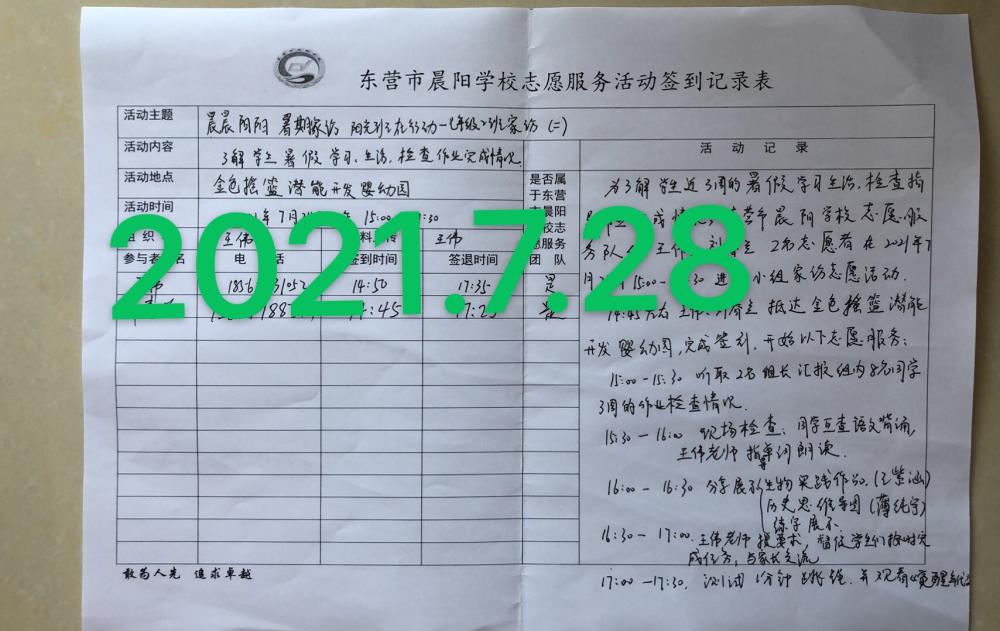 东营市晨阳学校志愿服务活动签到记录表
活动主题
晨晨阳阳 暑期家访 阳光到
在行动一七年级2班家访(二)
活动内容
了解学生暑假学习、生活,检查作业完成情况
活动记录
活动地点
金色摇篮潜能开发婴幼园
是否属于东营市晨阳学校志愿服务团队
活动时间
年7月
15:00
:30
组织
王伟
料上传
王伟
参与者
名
电
话
签到时间
签退时间
伟
1856
31052
14:50
17:35
是
188
:45
17:2
是
2021.7.28
为了解学生近3周的暑假学习生活,检查指
成情
东营市晨阳学校志愿服
务队
王伟
刘
2名志愿者在2021年7
月
15:00
进
小组家访志愿活动.
14:45左右
抵达金色摇篮潜能
开发婴幼园,完成签到,开始以下志愿服务:
15:00-15:30 听取2名组长汇报组内8名同学
3周的作业检查情况.
15:30-16:00 现场检查:同学互查语文背诵,
王伟老师指导单词朗读.
16:00-16:30 分享展示生物实践作品.(王紫涵)
历史思维导图(薄纯宇)
练字展示.
16:30-17:00.王伟老师提要求,督促学生们按时完
成任务,与家长交流
17:00-17:30,测试1分钟跳绳,并观看《觉醒年代》
敢为人先 追求卓越